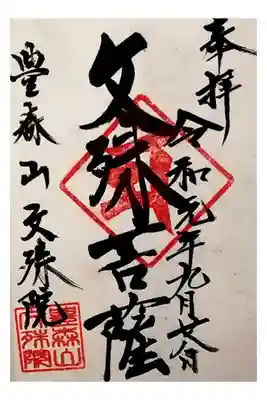 奉拝
令和元年九月廿八日
文殊菩薩
豐森山文殊院
豊森山
文殊院